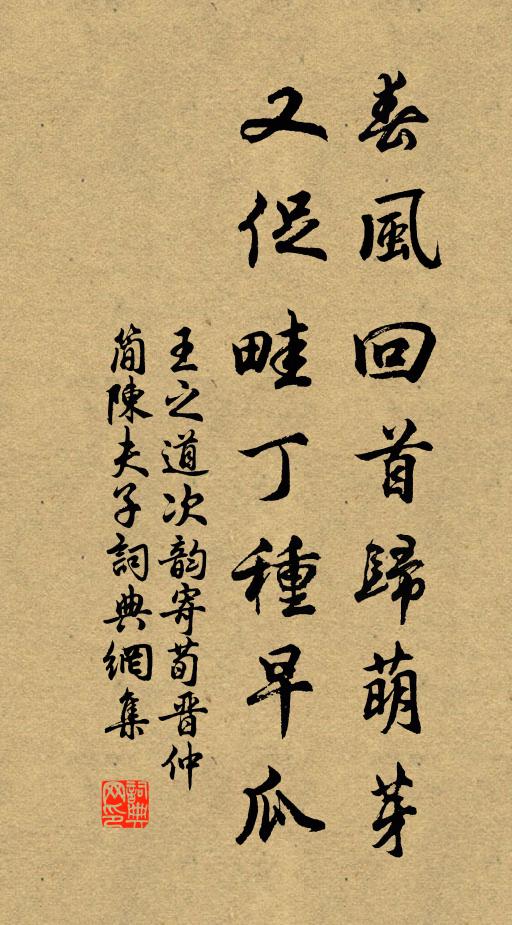 春風回首歸萌芽
又促畦丁種早瓜
王之道次韵寄荀晋仲
蕳陳夫子詞典網集
詞典网印